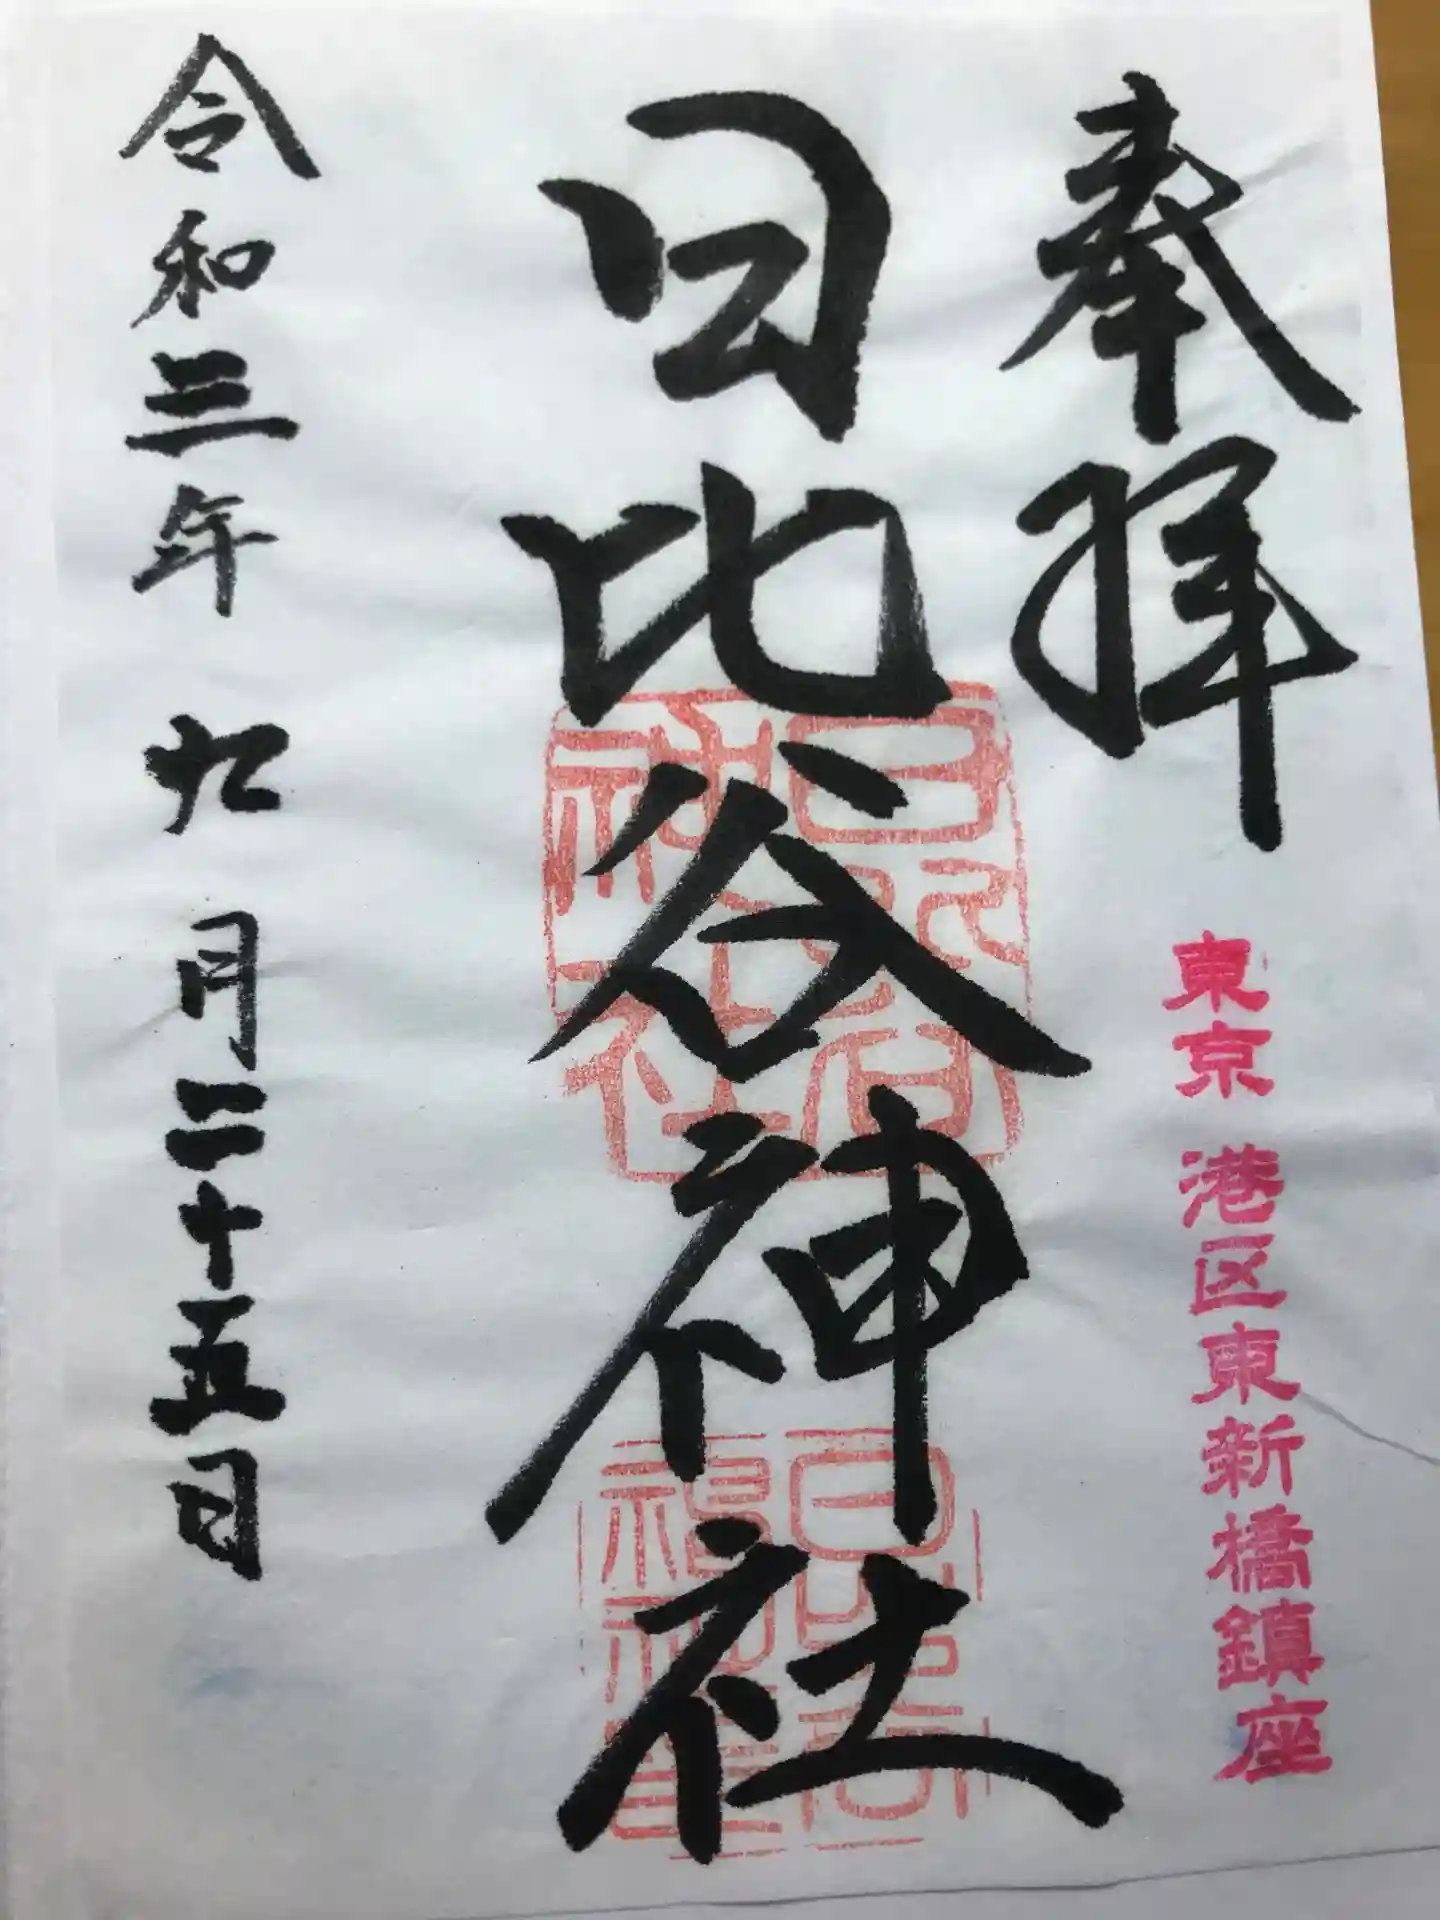 奉拝
東京 港区東新橋鎮座
日比谷神社
日比谷神社
令和三年 九月二十五日